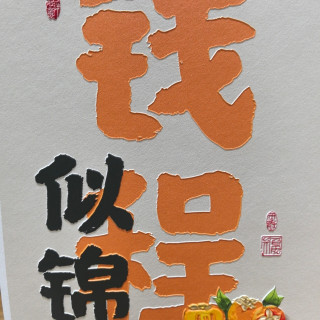 钱程
似锦
福